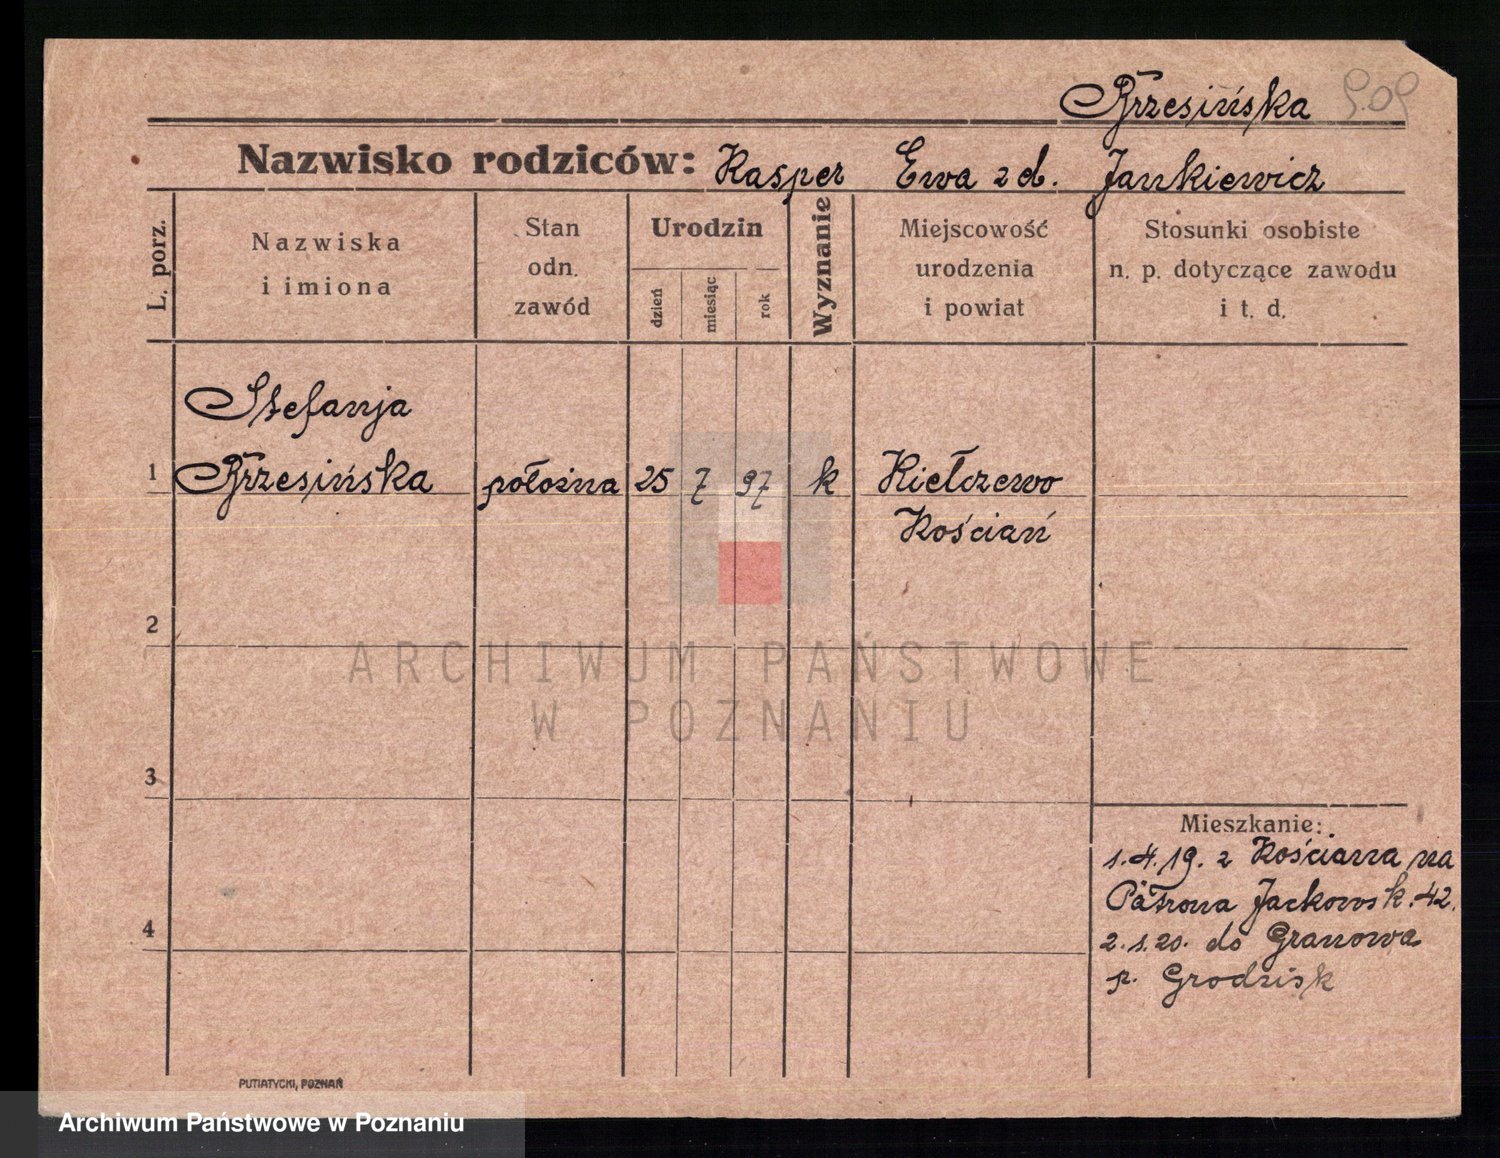 Brzesińska 909
Nazwisko rodziców: Kasper Ewa z d. Jankiewicz
L. porz.
Nazwiska
i imiona
Stan
odn.
zawód
Urodzin
dzień
miesiąc
rok
Wyznanie
Miejscowość
urodzenia
i powiat
Stosunki osobiste
n. p. dotyczące zawodu
i t. d.
Stefanja
1 Brzesińska położna 25 7 97 k Kiełczewo
Kościan
2
ARCHIWUM PAŃSTWOWE
W POZNANIU
3
Mieszkanie:
1.4.19. z Kościana na
Patrona Jackowsk. 42.
4
2.1.20. do Granowa
p. Grodzisk
PUTIATYCKI, POZNAŃ
Archiwum Państwowe w Poznaniu